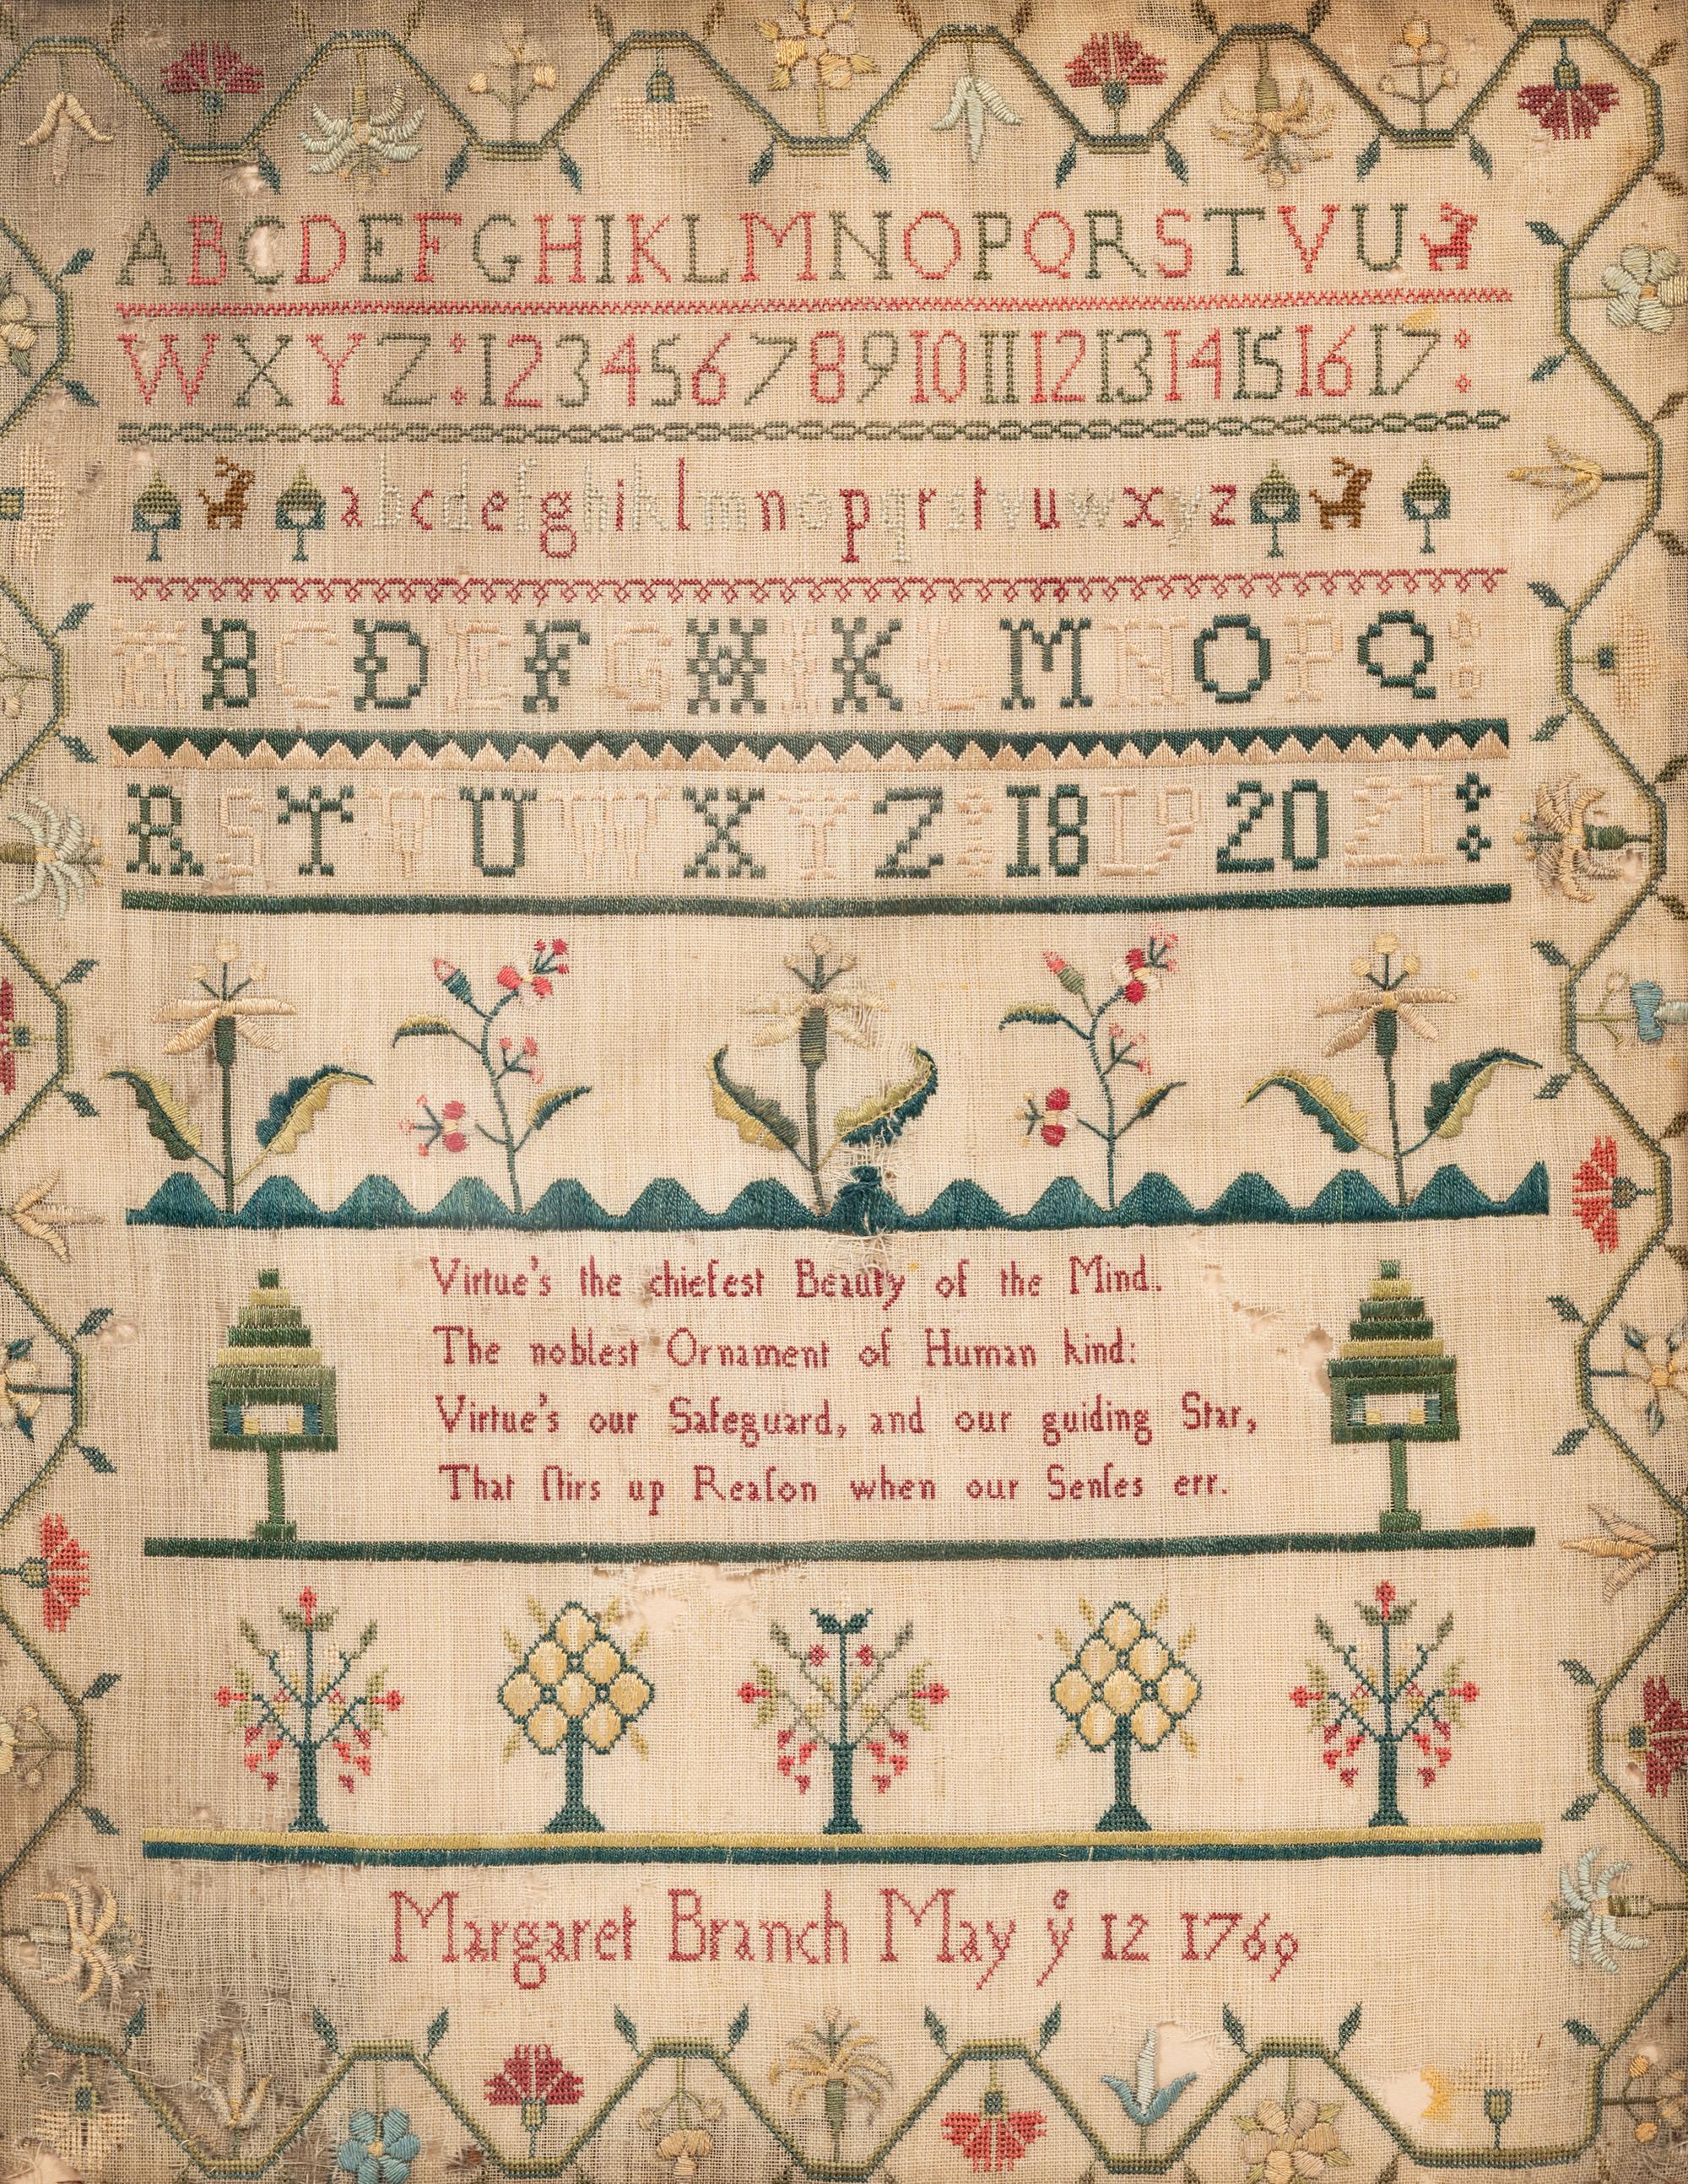 A B C D E F G H I K L M N O P Q R S T V U
W X Y Z : 1 2 3 4 5 6 7 8 9 10 11 12 13 14 15 16 17 :
a b c d e f g h i k l m n o p q r s t v u w x y z
A B C D E F G H I K L M N O P Q :
R S T V U W X Y Z : 18 19 20 21 :
Virtue's the chiefest Beauty of the Mind.
The noblest Ornament of Human kind:
Virtue's our Safeguard, and our guiding Star,
That ſtirs up Reaſon when our Senſes err.
Margaret Branch May yͤ 12 1769